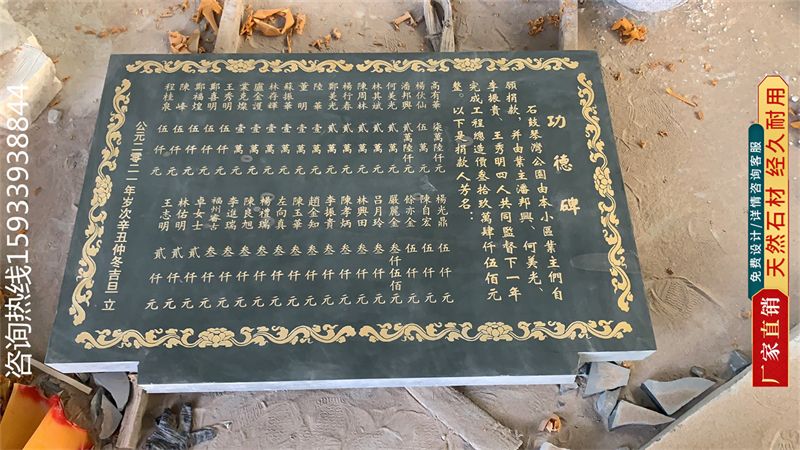 功德碑
石鼓琴灣公園由本小區業主們自
願捐款，并由業主潘邦興、何美光、
李振貴、王秀明四人共同監督下一年
完成工程總造價叁拾玖萬肆仟伍佰元
整。以下是捐款人芳名：
高有華 柒萬陸仟元
楊伏仙 伍萬元
潘邦興 貳萬陸仟元
何美光 貳萬元
林其斌 貳萬元
陳周林 貳萬元
楊行春 貳萬元
鄭美光 貳萬元
陸華 壹萬元
董明 壹萬元
蘇振華 壹萬元
林存輝 壹萬元
盧金護 壹萬元
葉克燦 壹萬元
王秀明 伍仟元
鄭喜明 伍仟元
鄭福煌 伍仟元
陳峰 伍仟元
程桂泉 伍仟元
楊光鼎 伍仟元
陳自宏 伍仟元
餘亦全 伍仟元
嚴麗金 叁仟伍佰元
呂月玲 叁仟元
林興田 叁仟元
陳孝炳 叁仟元
李振貴 叁仟元
趙金知 叁仟元
陳玉華 叁仟元
左向真 叁仟元
楊禮瑞 叁仟元
陳良旭 叁仟元
李進瑞 叁仟元
福州
卓女士
林佑明 貳仟元
王志明 貳仟元
公元二零二一年岁次辛丑仲冬吉旦 立
咨询热线15933938844
厂家直销
免费设计/详情咨询客服
天然石材 经久耐用